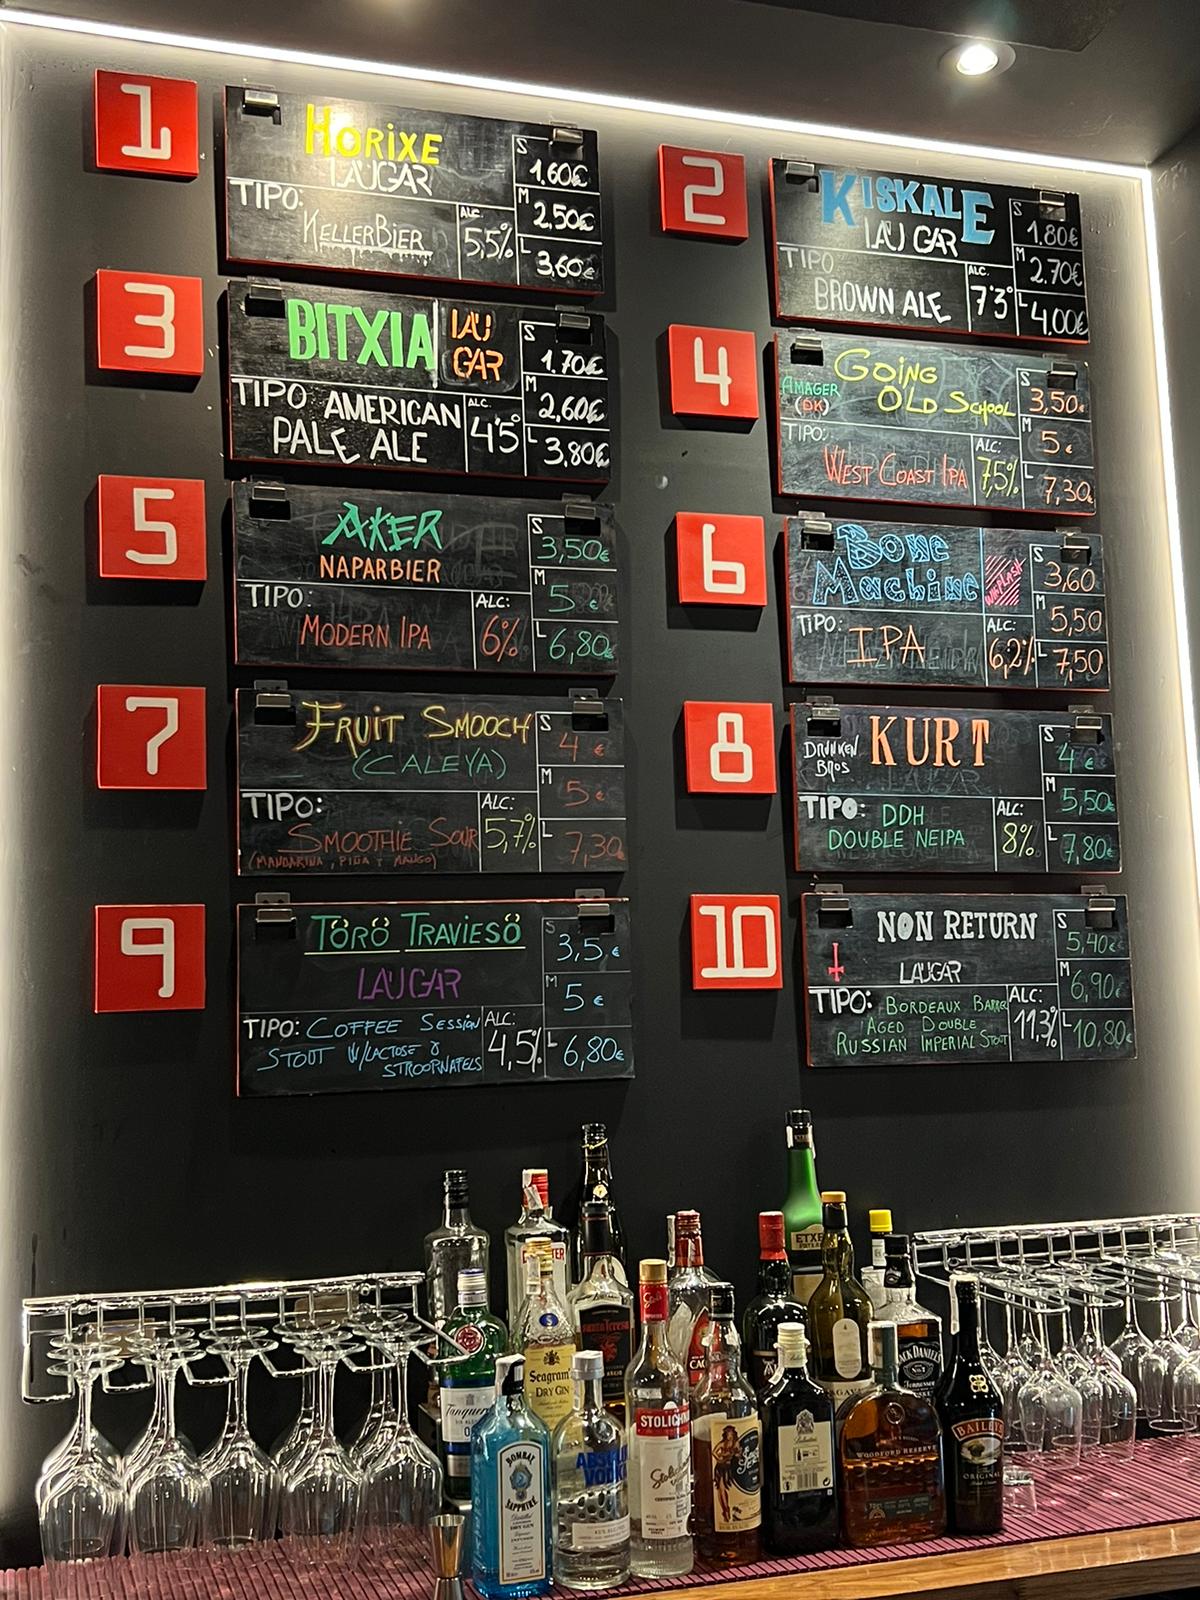 1
HORIXE
LAUGAR
TIPO:
KELLERBIER
ALC.
5,5%
S
1,60€
M
2,50€
L
3,60€
2
KISKALE
LAUGAR
TIPO
BROWN ALE
ALC.
7'3°
S
1.80€
M
2.70€
L
4,00€
3
BITXIA
LAU
GAR
TIPO AMERICAN
PALE ALE
ALC.
4'5°
S
1.70€
M
2,60€
L
3,80€
4
GOING
OLD SCHOOL
AMAGER
(DK)
TIPO:
WEST COAST IPA
ALC:
7,5%
S
3,50€
M
5€
L
7,30€
5
AKER
NAPARBIER
TIPO:
MODERN IPA
ALC:
6%
S
3,50€
M
5€
L
6,80€
6
Bone
Machine
WHIPLASH
TIPO:
IPA
ALC:
6,2%
S
3,60
M
5,50
L
7,50
7
FRUIT SMOOCH
(CALEYA)
TIPO:
SMOOTHIE SOUR
(MANDARINA, PIÑA Y MANGO)
ALC:
5,7%
S
4€
M
5€
L
7,30€
8
DRUNKEN
BROS
KURT
TIPO: DDH
DOUBLE NEIPA
ALC:
8%
S
4€
M
5,50€
L
7,80€
9
TÖRÖ TRAVIESÖ
LAUGAR
TIPO: COFFEE SESSION
STOUT W/LACTOSE &
STROOPNAFELS
ALC:
4,5%
S
3,5€
M
5€
L
6,80€
10
NON RETURN
LAUGAR
TIPO: BORDEAUX BARREL
AGED DOUBLE
RUSSIAN IMPERIAL STOUT
ALC:
11,3%
S
5,40€
M
6,90€
L
10,80€
Santa Teresa
Seagram's
DRY GIN
Tanqueray
BOMBAY
SAPPHIRE
ABSOLUT
VODKA
STOLICHNAYA
JACK DANIEL'S
Tennessee
WOODFORD RESERVE
BAILEYS
ORIGINAL